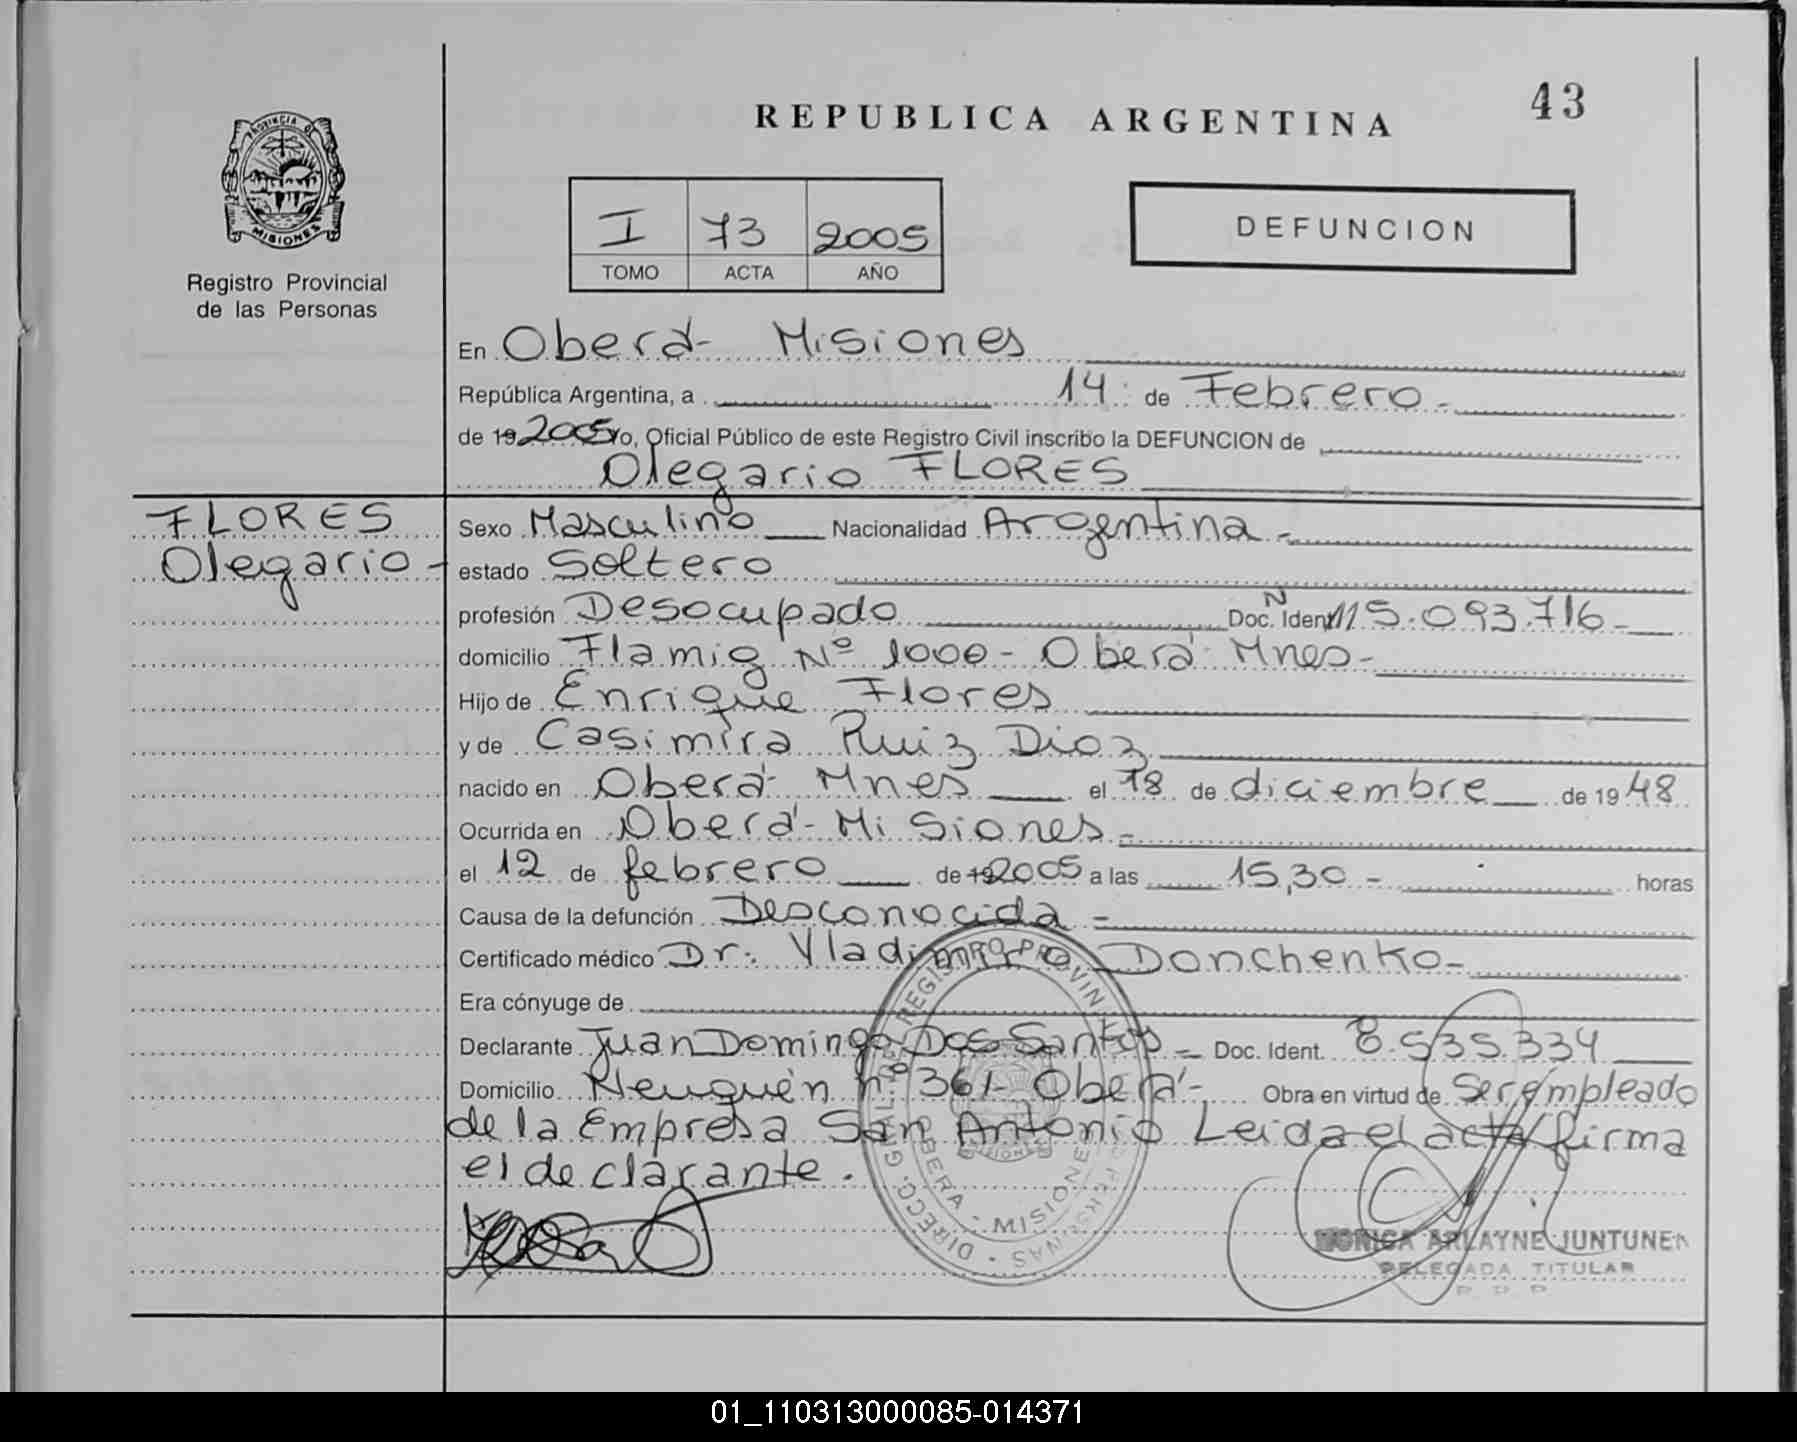 43
REPUBLICA ARGENTINA
PROVINCIA DE
MISIONES
Registro Provincial
de las Personas
I 73 2005
TOMO ACTA AÑO
DEFUNCION
En Oberá- Misiones
República Argentina, a 14 de Febrero -
de 19 2005 Yo, Oficial Público de este Registro Civil inscribo la DEFUNCION de
Olegario FLORES
FLORES
Olegario -
Sexo Masculino Nacionalidad Argentina -
estado Soltero
profesión Desocupado Doc. N Ident. M 5.093.716-
domicilio Flamig Nº 1000 - Oberá Mnes-
Hijo de Enrique Flores
y de Casimira Ruiz Diaz
nacido en Oberá- Mnes el 18 de diciembre de 19 48
Ocurrida en Oberá - Misiones -
el 12 de febrero de 19 2005 a las 15,30 - horas
Causa de la defunción Desconocida -
Certificado médico Dr. Vladimiro Donchenko-
Era cónyuge de
Declarante Juan Domingo Dos Santos - Doc. Ident. 8.535.334
Domicilio Neuquén nº 361- Oberá - Obra en virtud de Ser empleado
de la Empresa San Antonio Leida el acta firma
el declarante.
DIRECC. GRAL. DEL REGISTRO PROVIN
PERSONAS
OBERA - MISIONES
MONICA ARLAYNE JUNTUNEN
DELEGADA TITULAR
01_110313000085-014371